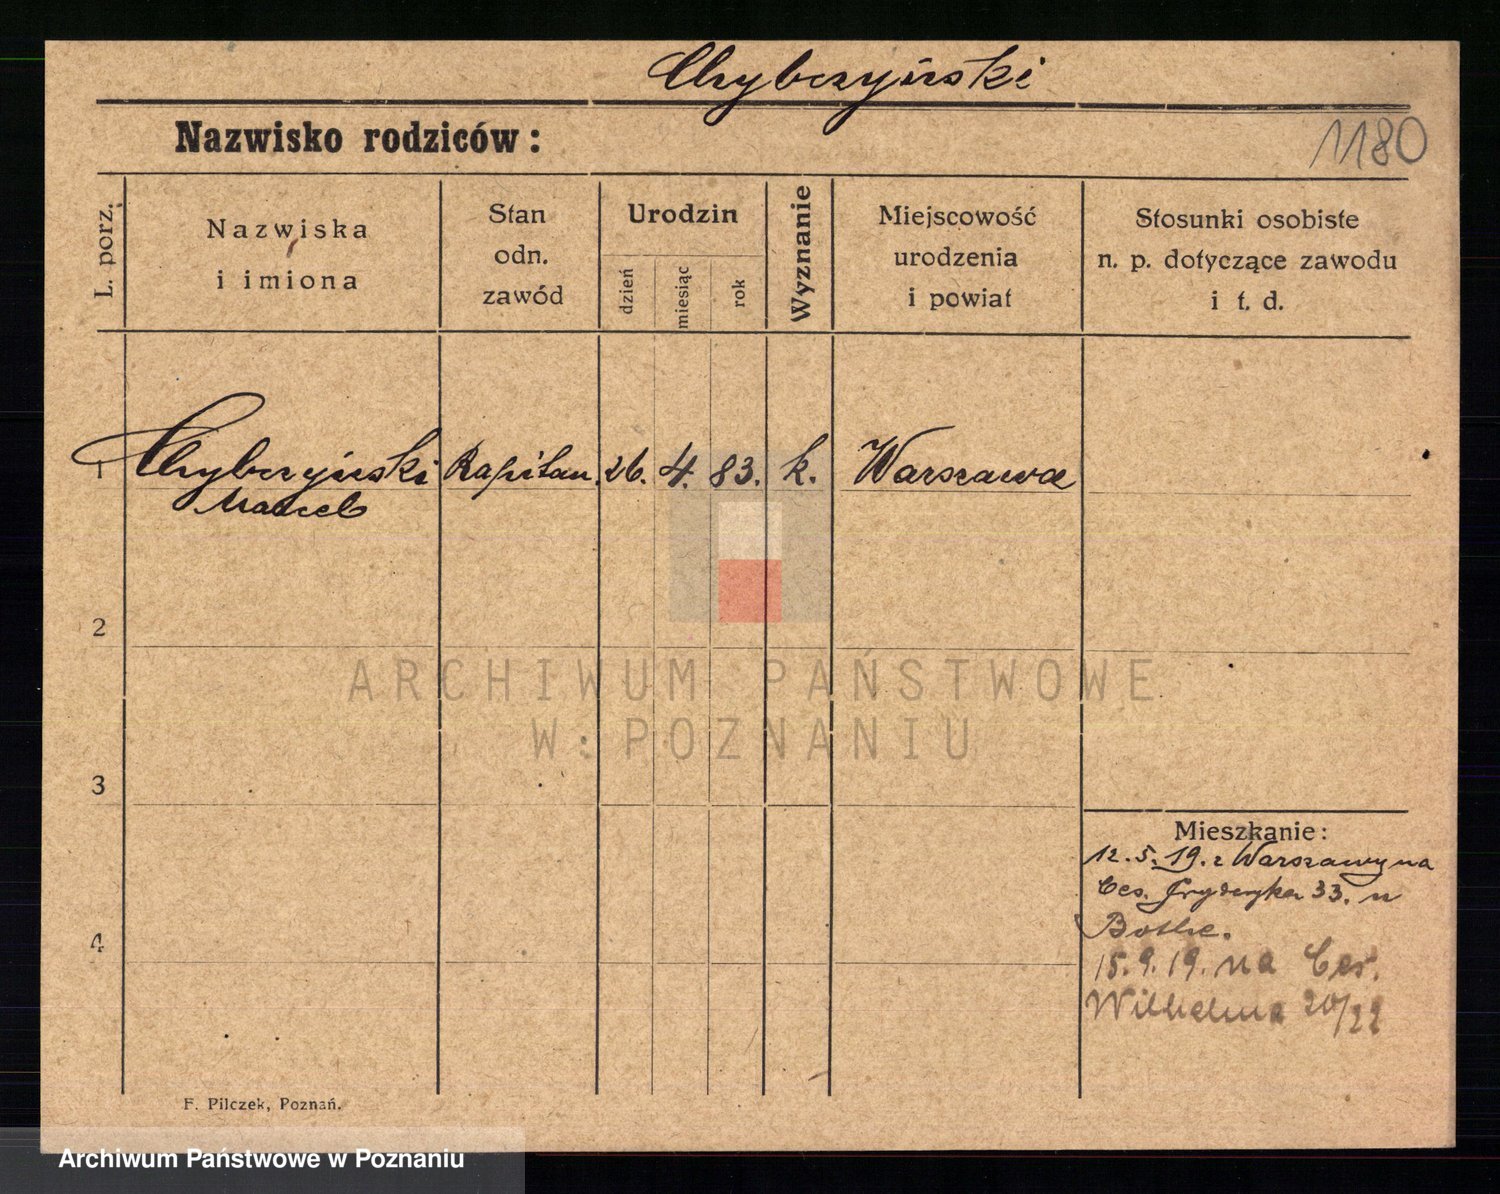 Chybczyński
Nazwisko rodziców:
1180
L. porz.
Nazwiska
i imiona
Stan
odn.
zawód
Urodzin
dzień
miesiąc
rok
Wyznanie
Miejscowość
urodzenia
i powiat
Stosunki osobiste
n. p. dotyczące zawodu
i t. d.
1 Chybczyński Kapitan. 26. 4. 83. k. Warszawa
Marceli
2
ARCHIWUM PAŃSTWOWE
W POZNANIU
3
Mieszkanie:
12.5.19. z Warszawy na
Ces. Fryderyka 33. u
Bothe.
4
15.9.19. na Ces.
Wilhelma 20/22
F. Pilczek, Poznań.
Archiwum Państwowe w Poznaniu